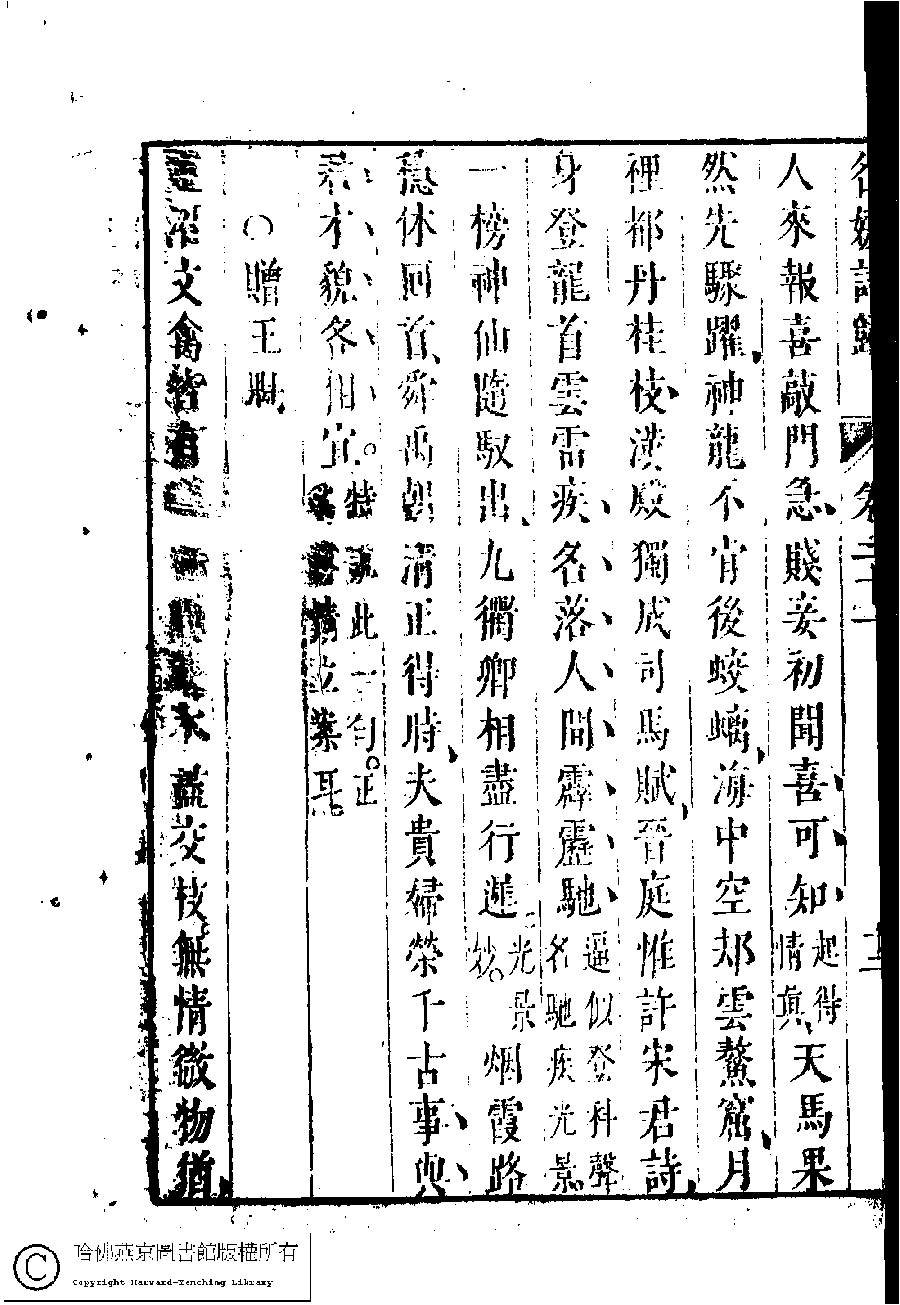 名媛詩歸 卷二十一 十二
人來報喜敲門急賤妾初聞喜可知起得情真天馬果
然先驟躍神龍不肯後蛟螭海中空却雲鰲窟月
裡都丹桂枝漢殿獨成司馬賦晉庭惟許宋君詩
身登龍首雲雷疾名落人間霹靂馳逼似登科聲名馳疾光景
一榜神仙隨馭出九衢卿相盡行遲光景妙烟霞路
穩休回首舜禹朝清正得時夫貴婦榮千古事與
君才貌各相宜特說此一句正情立案耳
○贈王
文禽皆有 木交枝無情微物猶
哈佛燕京圖書館版權所有
Copyright Harvard-Yenching Library